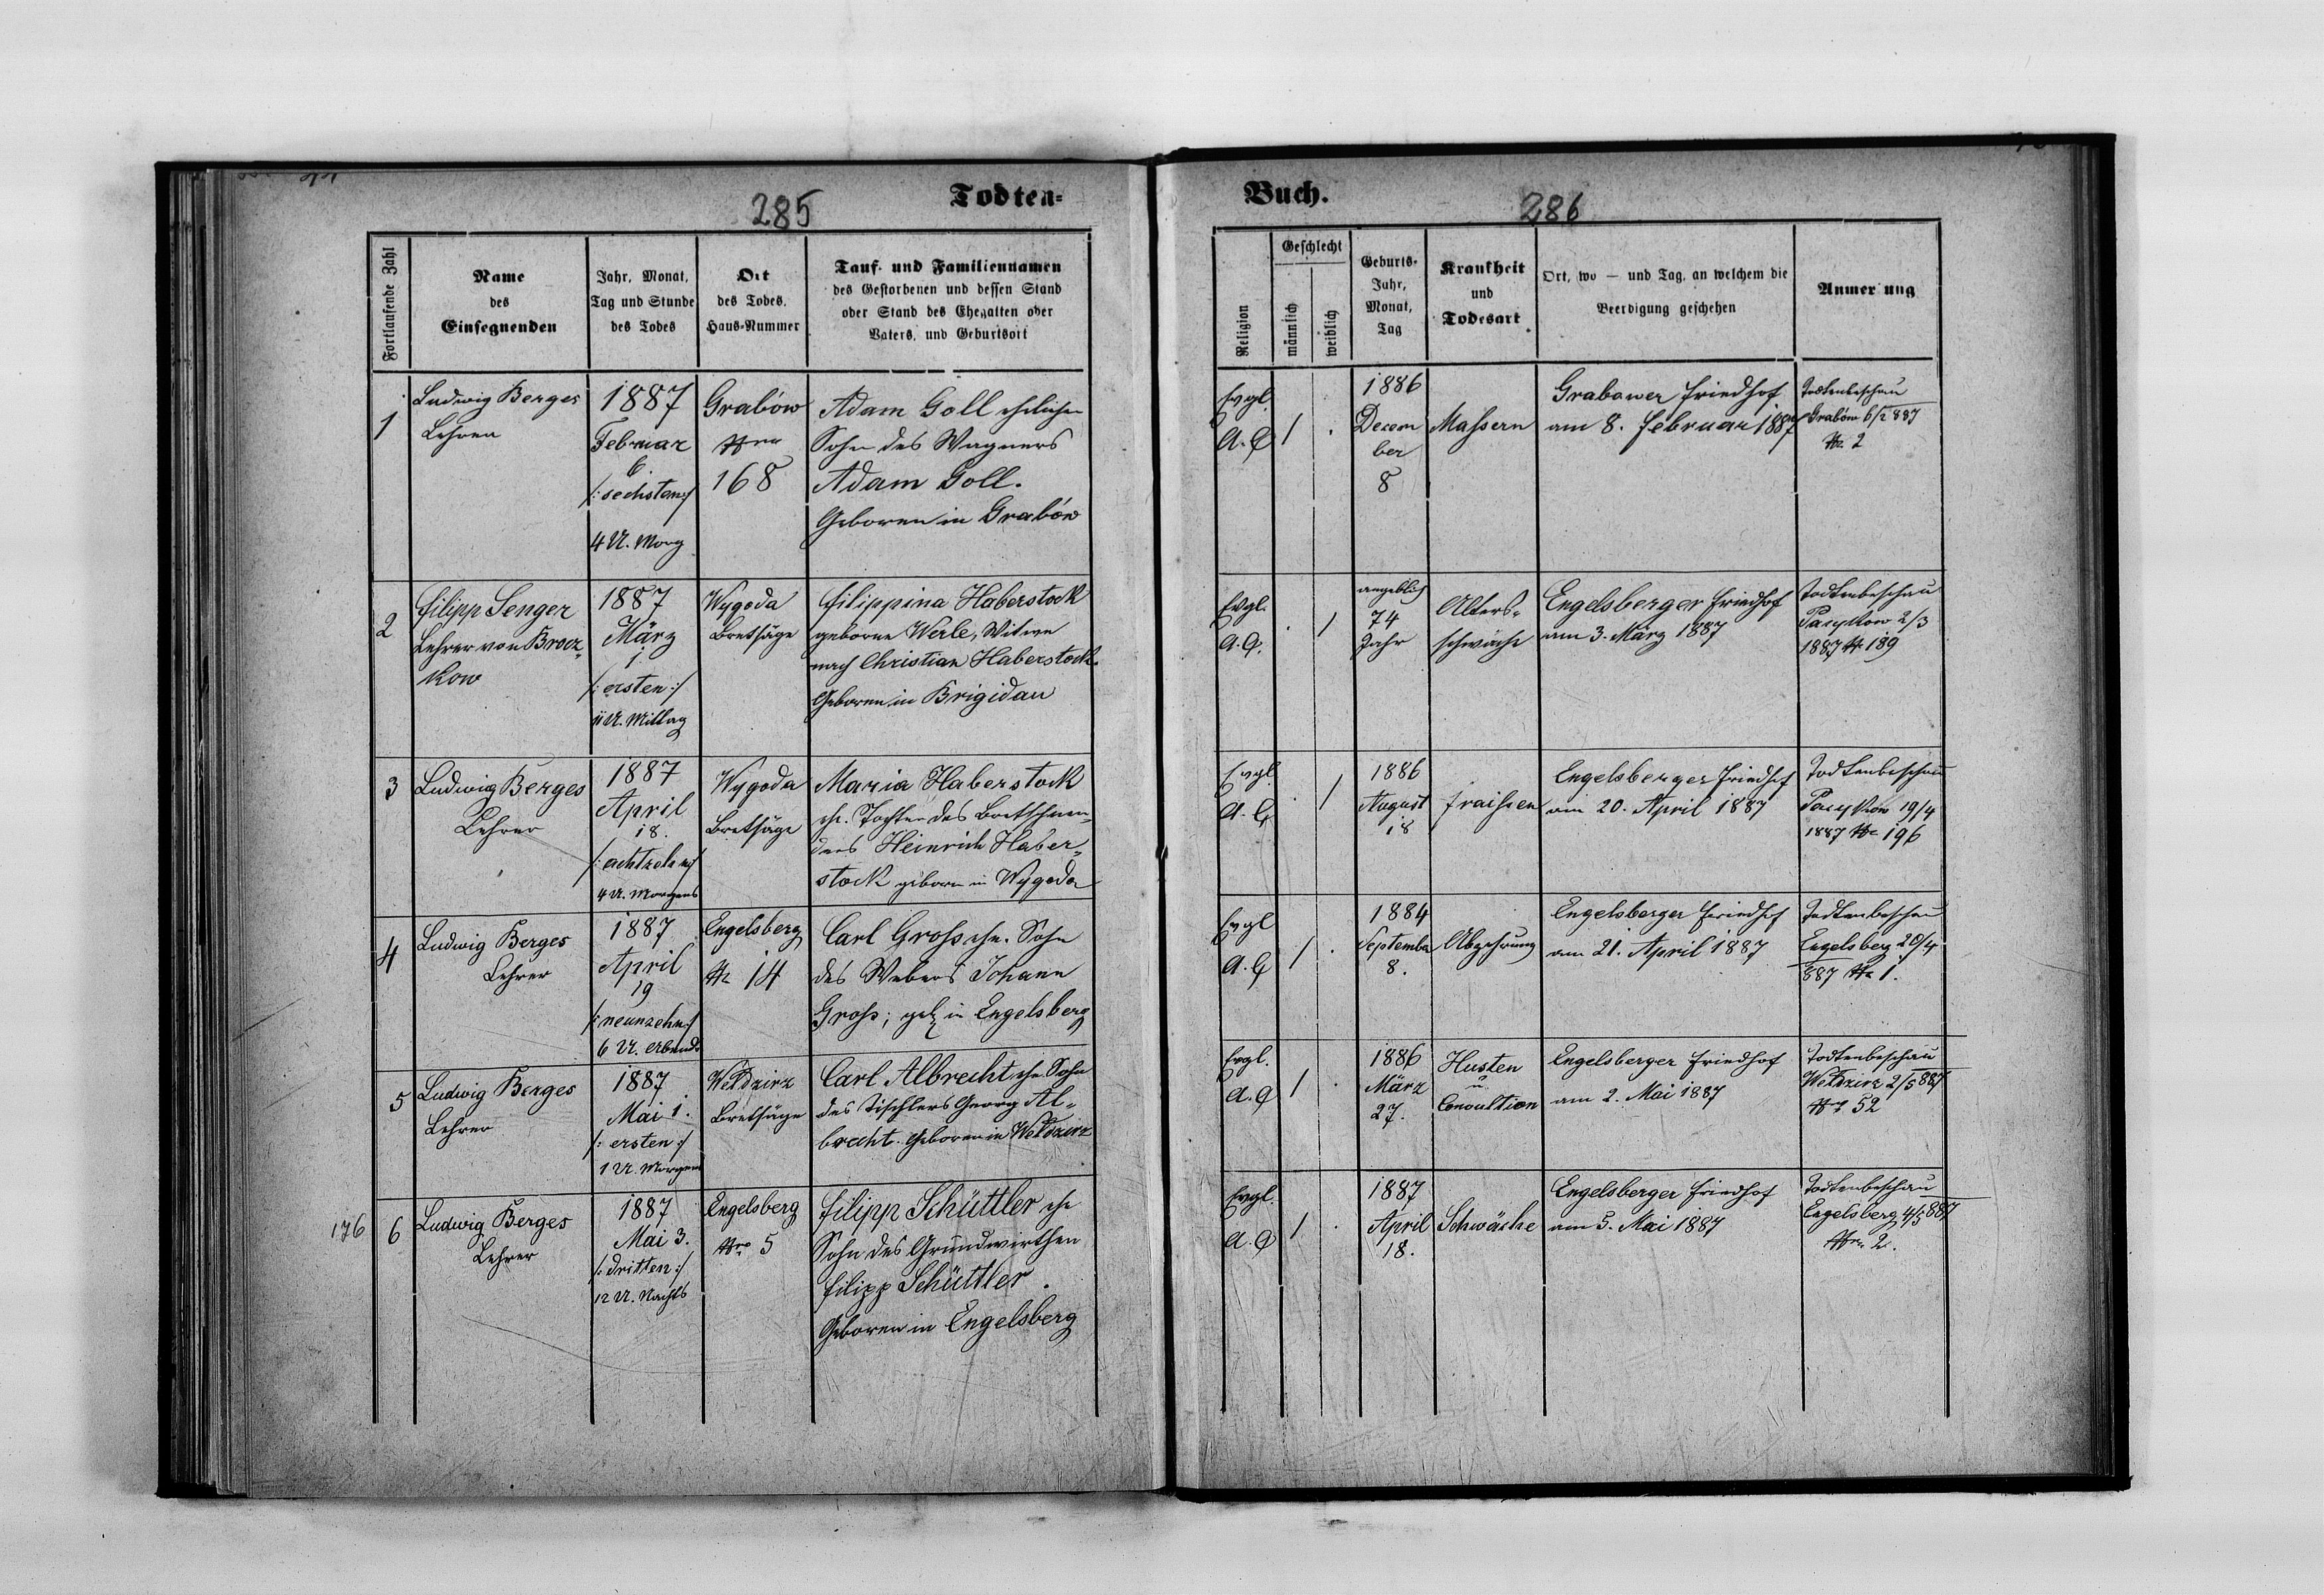 285
Todten-
Fortlaufende Zahl
Name
des
Einsegnenden
Jahr, Monat,
Tag und Stunde
des Todes
Ort
des Todes,
Haus-Nummer
Tauf- und Familiennamen
des Gestorbenen und dessen Stand
oder Stand des Ehegatten oder
Vaters, und Geburtsort
1
Ludwig Berges
Lehrer
1887
Februar
6
/:sechsten:/
4 U. Morg
Grabów
Nro
168
Adam Goll ehelicher
Sohn des Wagners
Adam Goll.
Geboren in Grabów
2
Filipp Senger
Lehrer von Brocz-
kow
1887
März
1
/:ersten:/
11 U. Mittag
Wygoda
Bretsäge
Filippina Haberstock
geborene Werle, Witwe
nach Christian Haberstock.
Geboren in Brigidau
3
Ludwig Berges
Lehrer
1887
April
18.
/:achtzehn:/
4 U. Morgens
Wygoda
Bretsäge
Maria Haberstock
ehe. Tochter des Bretschnei-
ders Heinrich Haber-
stock geboren in Wygoda
4
Ludwig Berges
Lehrer
1887
April
19
/:neunzehn:/
6 U. Abends
Engelsberg
Nr 14
Carl Gross ehe. Sohn
des Webers Johann
Gross; geb in Engelsberg
5
Ludwig Berges
Lehrer
1887
Mai 1.
/:ersten:/
1 U. Morgens
Wełdzirz
Bretsäge
Carl Albrecht ehe Sohn
des Tischlers Georg Al-
brecht. Geboren in Wełdzirz
176
6
Ludwig Berges
Lehrer
1887
Mai 3.
/:dritten:/
12 U. Nachts
Engelsberg
Nro 5
Filipp Schüttler ehe
Sohn des Grundwirthen
Filipp Schüttler.
Geboren in Engelsberg
Buch.
286
Religion
Geschlecht
männlich
weiblich
Geburts-
Jahr,
Monat,
Tag
Krankheit
und
Todesart
Ort, wo — und Tag, an welchem die
Beerdigung geschehen
Anmer ung
Evgl.
A.C
1
.
1886
Decem
ber
8
Massern
Grabower Friedhof
am 8. Februar 1887
Todtenbeschau
Grabów 6/2 887
Nr. 2
Evgl.
A.C.
.
1
angeblich
74
Jahr
Alters-
schwäche
Engelsberger Friedhof
am 3. März 1887
Todtenbeschau
Pacykow 2/3
1887 Nr 189
Evgl
A.C
.
1
1886
August
18
Fraissen
Engelsberger Friedhof
am 20. April 1887
Todtenbeschau
Pacykow 19/4
1887 Nr 196
Evgl
A.C
1
.
1884
September
8.
Abzehrung
Engelsberger Friedhof
am 21. April 1887
Todtenbeschau
Engelsberg 20/4
887 Nr 1.
Evgl.
A.C
1
.
1886
März
27.
Husten
u.
Convultion
Engelsberger Friedhof
am 2. Mai 1887
Todtenbeschau
Wełdzirz 2/5 887
Nro 52
Evgl.
A.C
1
.
1887
April
18.
Schwäche
Engelsberger Friedhof
am 5. Mai 1887
Todtenbeschau
Engelsberg 4/5 887
Nro 2.